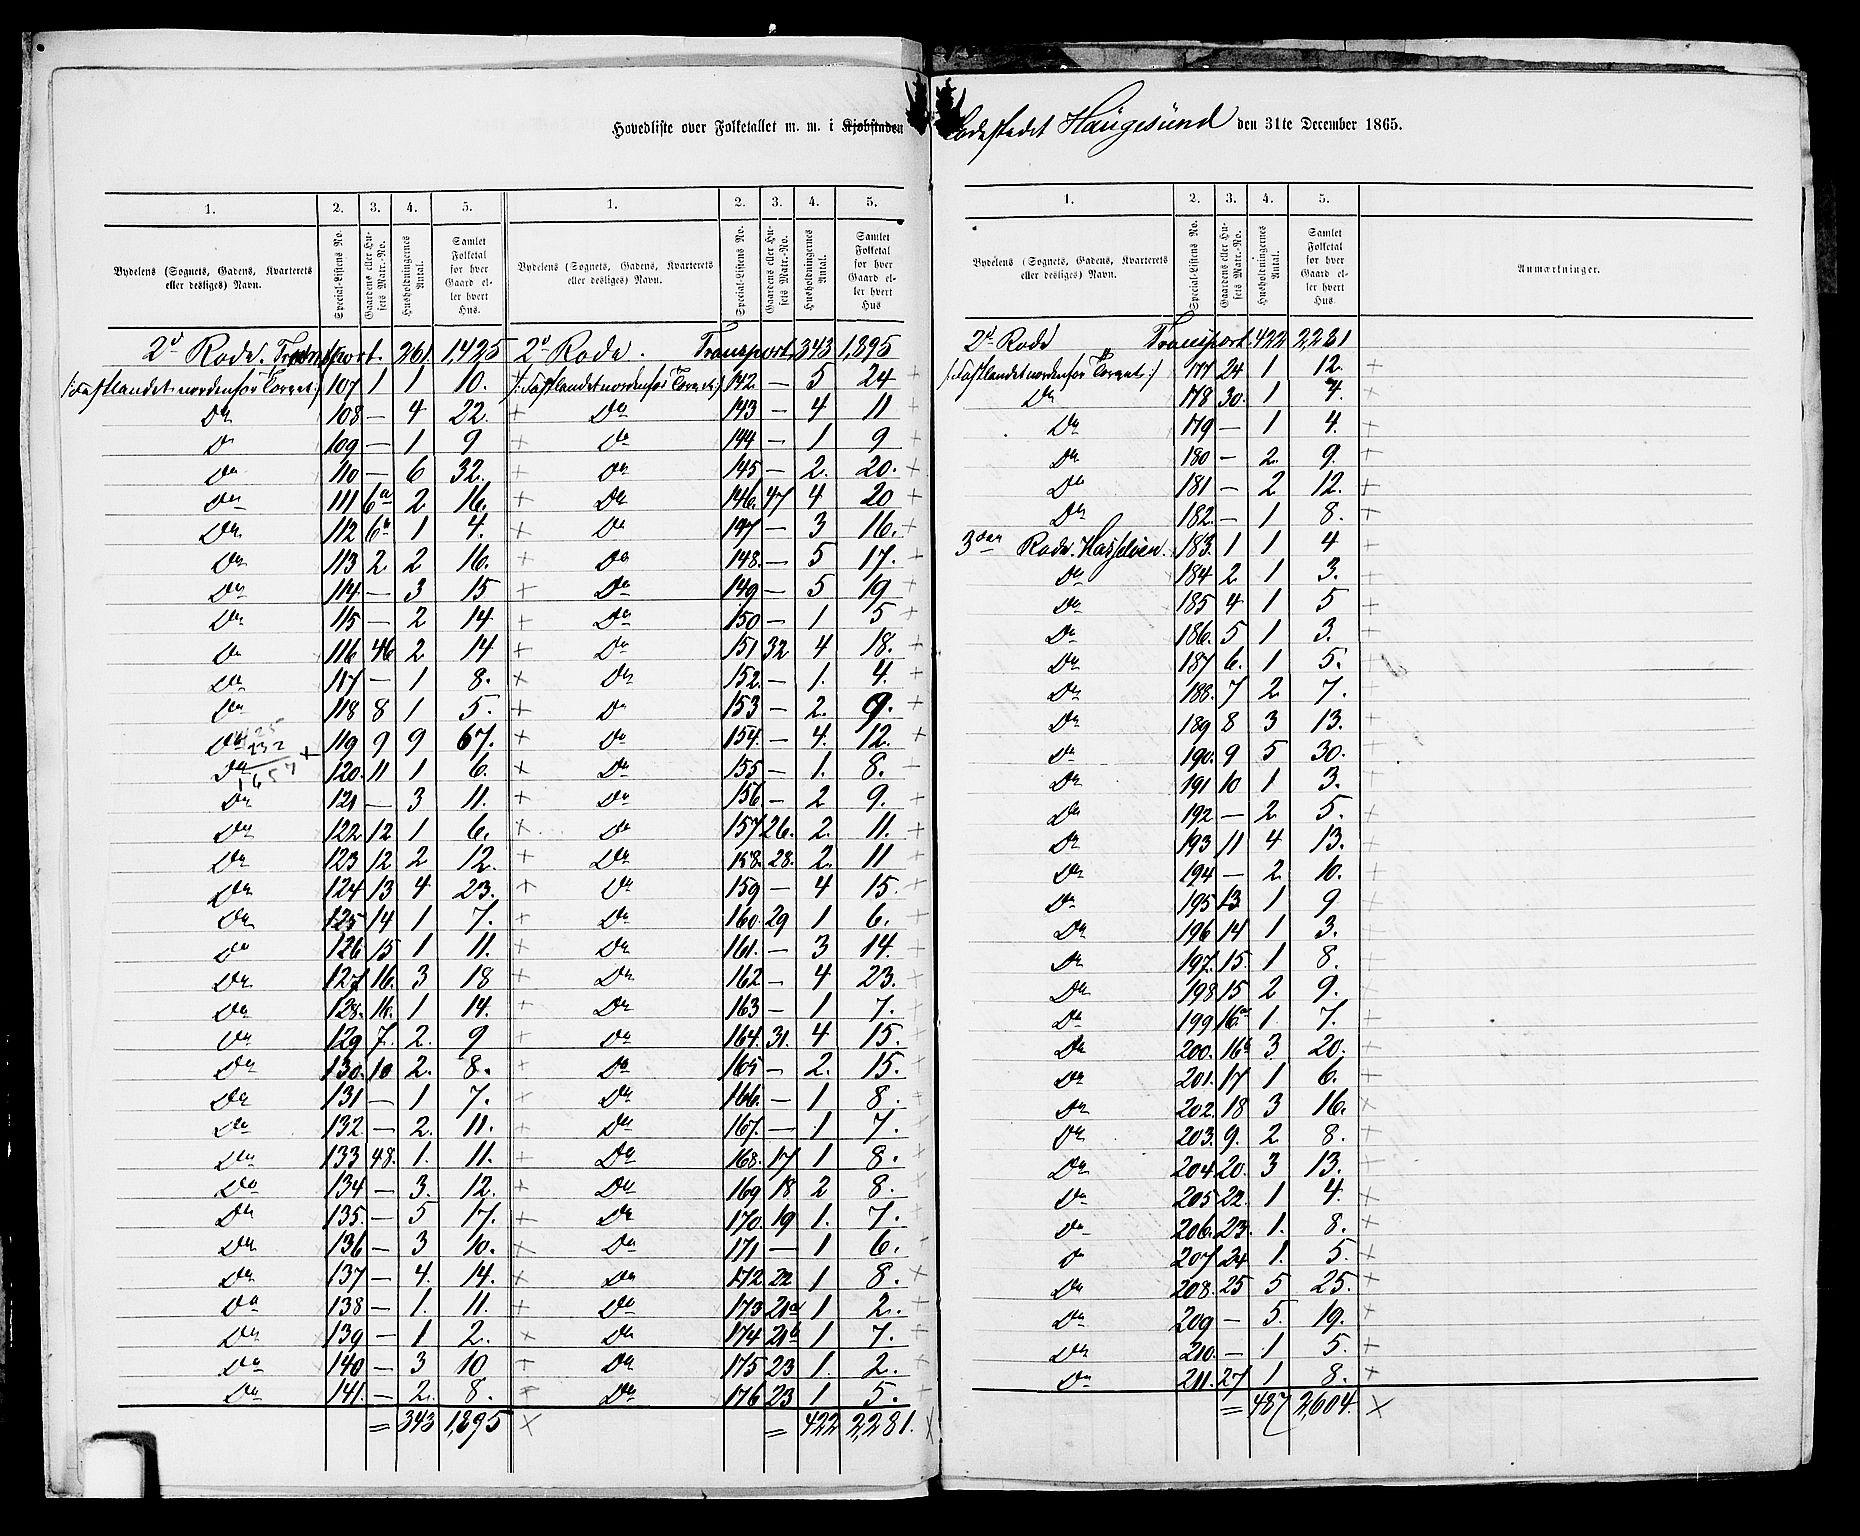 Hovedliste over Folketallet m. m. i Kjøbstaden Ladestedet Haugesund den 31te December 1865.
1. 2. 3. 4. 5. 1. 2. 3. 4. 5.
Bydelens (Sognets, Gadens, Kvarterets eller desliges) Navn. Special-Listens No. Gaardens eller Husets Matr.-No. Husholdningernes Antal. Samlet Folketal for hver Gaard eller hvert Hus. Bydelens (Sognets, Gadens, Kvarterets eller desliges) Navn. Special-Listens No. Gaardens eller Husets Matr.-No. Husholdningernes Antal. Samlet Folketal for hver Gaard eller hvert Hus
2d Rode. Transport. 261 1,425 2d Rode. Transport. 343 1,895
/:Fastlandet nordenfor Torvet:/ 107 1 1 10. /:Fastlandet nordenfor Torvet:/ 142 — 5 24 +
Do 108 — 4 22. + Do 143 — 4 11 +
Do 109 — 1 9 + Do 144 — 1 9 +
Do 110 — 6 32. + Do 145 — 2. 20. +
Do 111 6a 2 16. + Do 146. 47 4 20 +
Do 112 6b 1 4. + Do 147 — 3 16. +
Do 113 2 2 16. + Do 148. — 5 17. +
Do 114 — 3 15 + Do 149 — 5 19 +
Do 115 — 2 14 + Do 150 — 1 5 +
Do 116 46 2 14 + Do 151 32 4 18. +
Do 117 — 1 8. + Do 152. — 1. 4. +
Do 118 8 1 5. + Do 153 — 2. 9. +
Do 119 9 9 67. + Do 154. — 4. 12. +
425
232
1657
Do 120. 11 1 6. + Do 155 — 1. 8. +
Do 121 — 3 11. + Do 156 — 2 9. +
Do 122 12 1 6. + Do 157 26. 2. 11. +
Do 123 12 2 12. + Do 158. 28. 2. 11 +
Do 124 13 4 23. + Do 159 — 4 15. +
Do 125 14 1 7. + Do 160. 29 1 6. +
Do 126 15 1 11. + Do 161. — 3 14. +
Do 127 16. 3 18 + Do 162 — 4 23. +
Do 128. 16. 1 14. + Do 163 — 1 7. +
Do 129 7. 2. 9 + Do 164. 31. 4 15. +
Do 130. 10 2. 8. + Do 165 — 2. 15. +
Do 131 — 1 7. + Do 166. — 1 8. +
Do 132 — 2. 11. + Do 167. — 1 7. +
Do 133 48. 1. 11. + Do 168. 17 1 8. +
Do 134 — 3. 12. + Do 169 18 2 8. +
Do 135. — 5 17. + Do 170. 19 1. 7. +
Do 136 — 3 10. + Do 171 — 1 6. +
Do 137 — 4. 14. + Do 172 22 1 8. +
Do 138 — 1. 11. + Do 173 21a 1 2. +
Do 139 — 1 2. + Do 174 21b 1 7. +
Do 140 — 3 10 + Do 175 23 1. 2. +
Do 141. — 2. 8. + Do 176 23 1 5. +
= 343 1,895 × = 422 2,281. ×
1. 2. 3. 4. 5.
Bydelens (Sognets, Gadens, Kvarterets eller desliges) Navn. Special-Listens No. Gaardens eller Husets Matr.-No. Husholdningernes Antal. Samlet Folketal for hver Gaard eller hvert Hus. Anmærkninger.
2d Rode Transport. 422 2,281
/:Fastlandet nordenfor Torvet:/ 177 24 1 12. +
Do 178 30. 1 4. +
Do 179 — 1 4. +
Do 180 — 2. 9. +
Do 181 — 2 12. +
Do 182. — 1 8. +
3die Rode. Hasseløen. 183. 1 1 4 +
Do 184 2 1 3. +
Do 185 4 1 5 +
Do 186. 5 1 3. +
Do 187 6. 1 5. +
Do 188. 7 2. 7. +
Do 189 8 3 13. +
Do 190. 9 5 30. +
Do 191 10 1 3. +
Do 192 — 2 5. +
Do 193 11 4 13. +
Do 194 — 2 10. +
Do 195 13. 1 9 +
Do 196 14 1 3. +
Do 197. 15. 1 8. +
Do 198 15 2 9. +
Do 199 16a 1. 7. +
Do 200. 16b 3 20. +
Do 201. 17 1 6. +
Do 202. 18 3 16. ×
Do 203. 9. 2 8. +
Do 204 20. 3 13. +
Do 205 22. 1 4. +
Do 206. 23. 1. 8. +
Do 207 24 1. 5. +
Do 208. 25 5 25. +
Do 209 — 5. 19. +
Do 210. — 1 5. +
Do 211. 27 1 8. +
= 487 2,604. ×